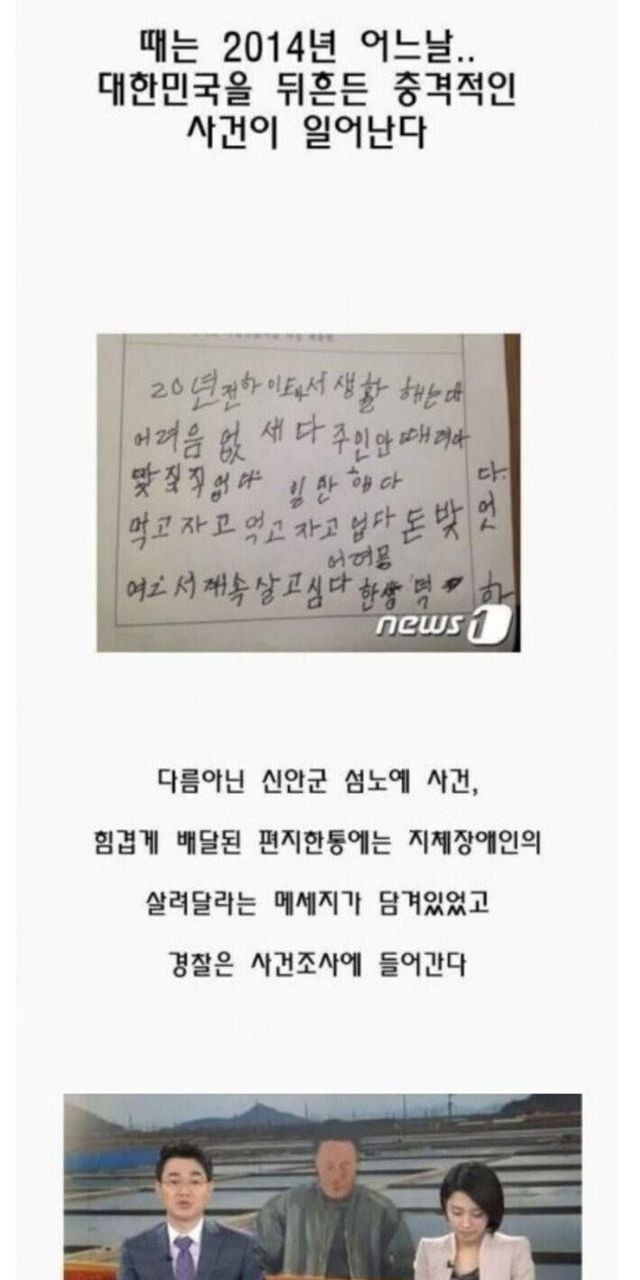 때는 2014년 어느날..
대한민국을 뒤흔든 충격적인
사건이 일어난다
20년전하이도에서 생활 해는대
어려음 없 새다 주인안때려다
맟질직업다 일만 햅다 다.
먹고자고 먹고자고 업다 돈 밫 엇
어려문
여고서재속살고심다 한상 하
news1
다름아닌 신안군 섬노예 사건,
힘겹게 배달된 편지한통에는 지체장애인의
살려달라는 메세지가 담겨있었고
경찰은 사건조사에 들어간다